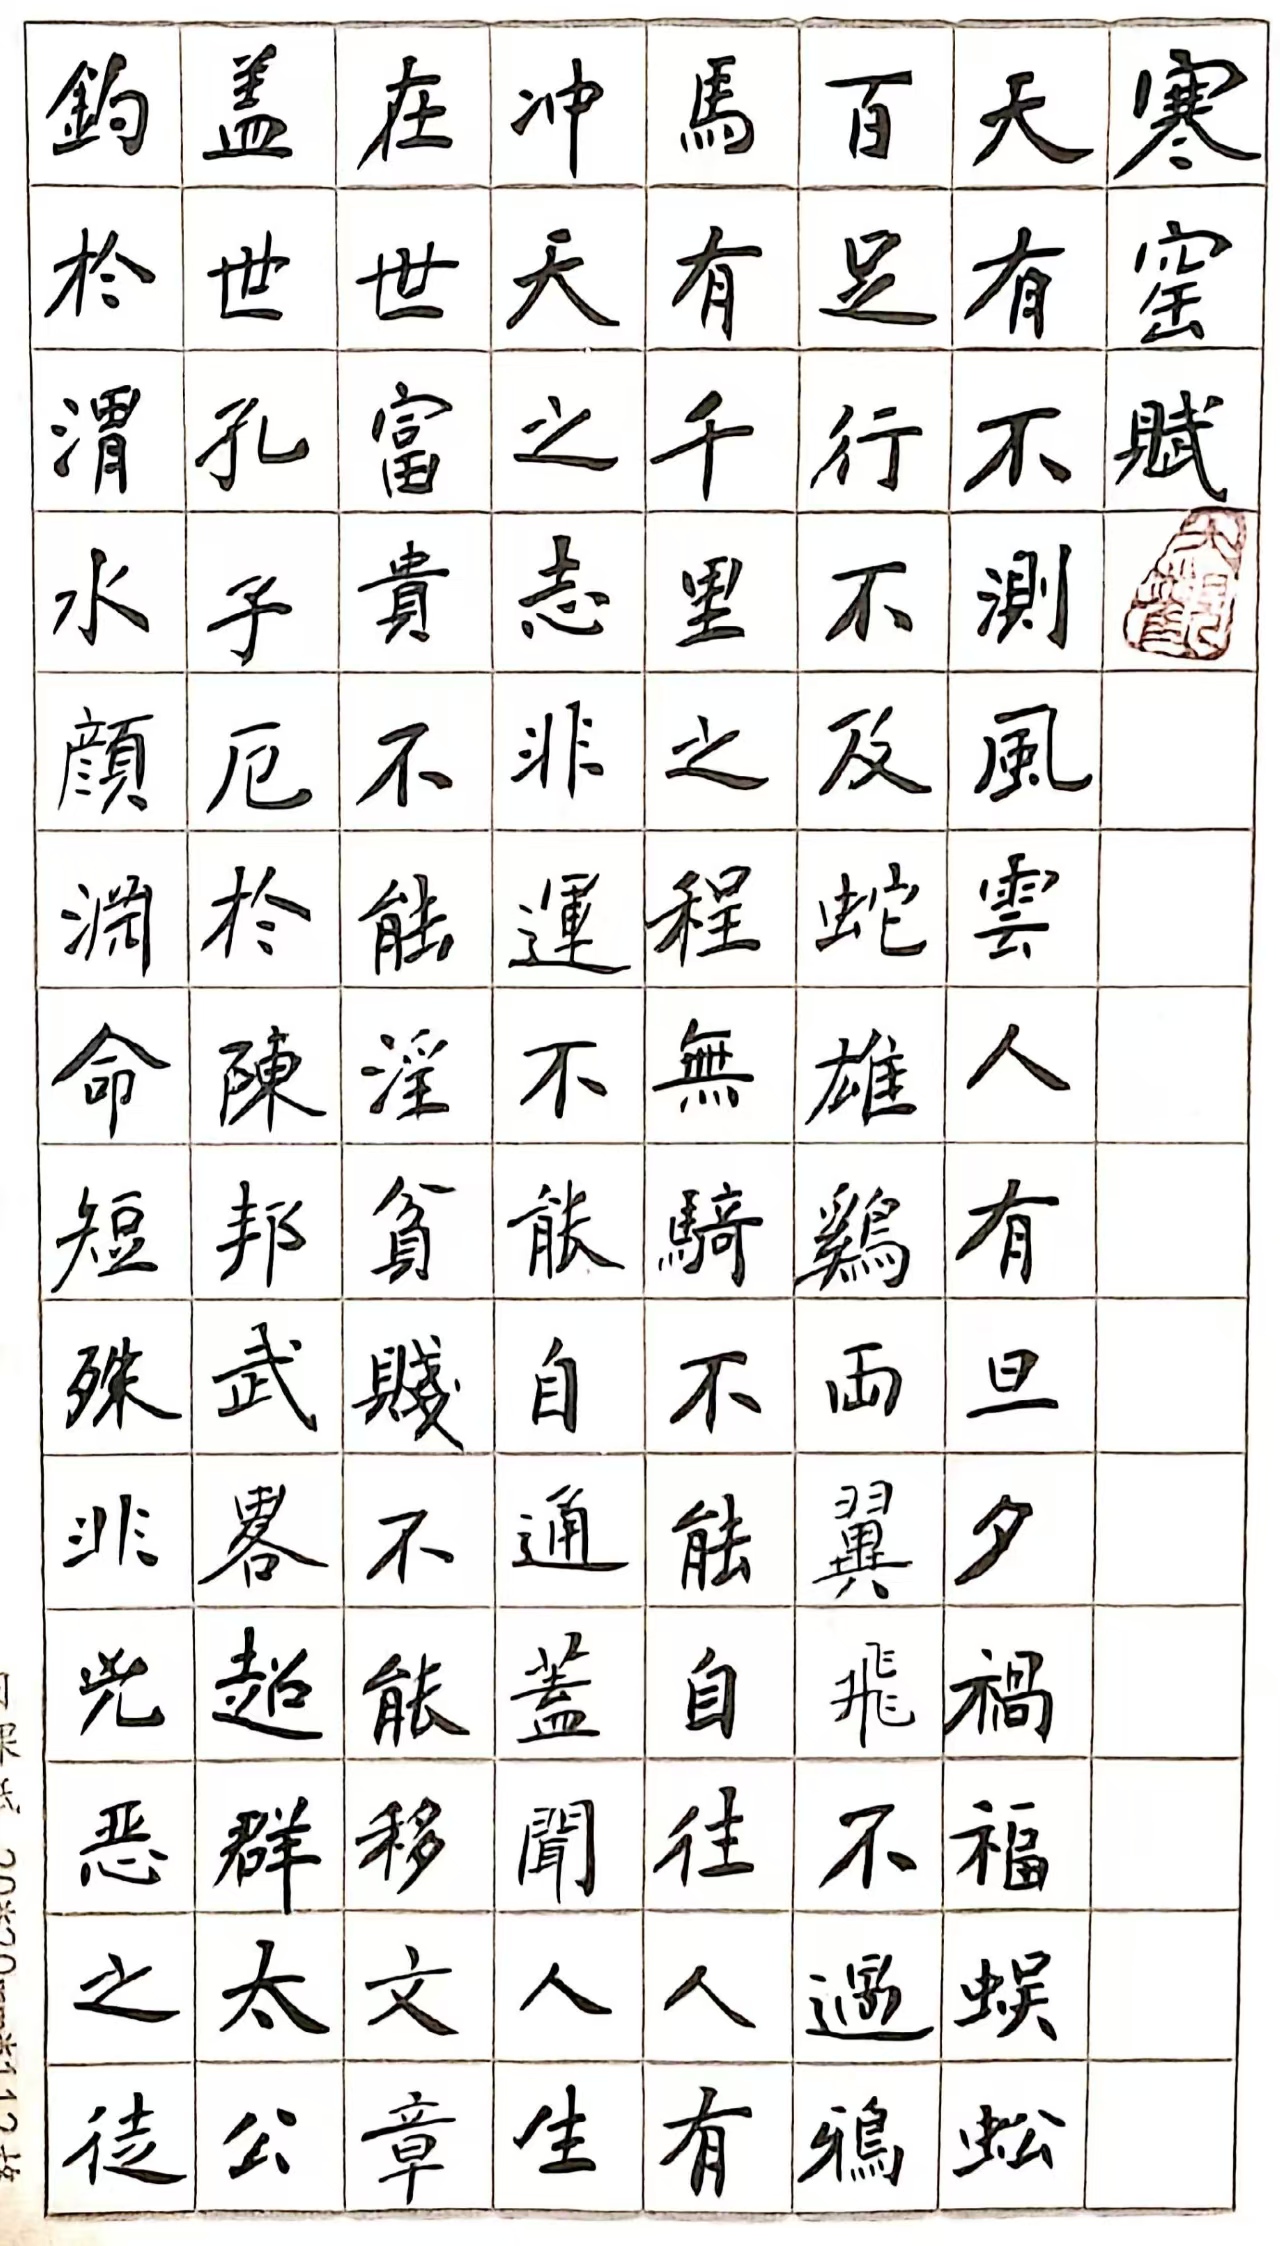 寒窑賦
天有不測風雲人有旦夕禍福蜈蚣
百足行不及蛇雄鷄兩翼飛不過鴉
馬有千里之程無騎不能自往人有
冲天之志非運不能自通蓋聞人生
在世富貴不能淫貧賤不能移文章
盖世孔子厄於陳邦武畧超群太公
釣於渭水顔淵命短殊非兇惡之徒